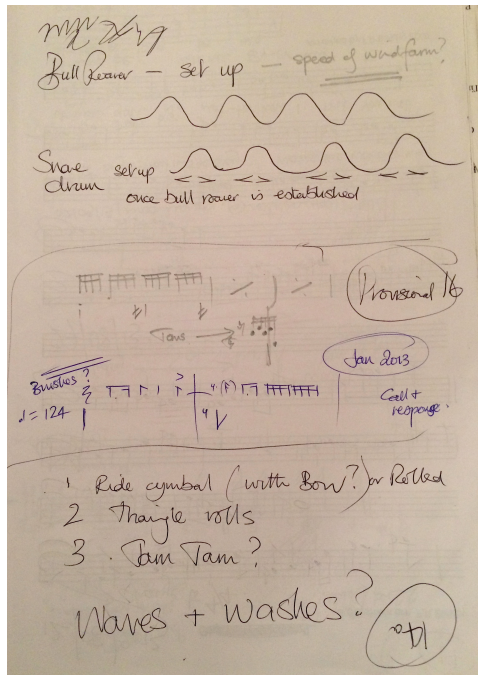 Bull Roarer — set up — speed of windfarm?
Snare drum set up
once bull roarer is established
Provisional
Toms →
Jan 2013
Brushes?
♩= 124
Call + response.
1 Ride cymbal (with Bow?) or Rolled
2 Triangle rolls
3. Tam Tam?
Waves + washes?
14a